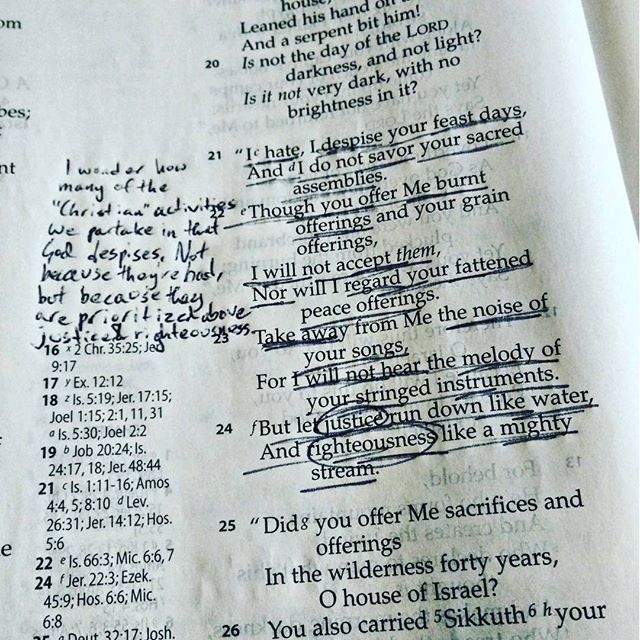 om
house,
Leaned his hand on
And a serpent bit him!
20 Is not the day of the LORD
darkness, and not light?
Is it not very dark, with no
brightness in it?
bes;
nt
21 "I c hate, I despise your feast days,
And d I do not savor your sacred
assemblies.
22 e Though you offer Me burnt
offerings and your grain
offerings,
I will not accept them,
Nor will I regard your fattened
peace offerings.
23 Take away from Me the noise of
your songs,
For I will not hear the melody of
your stringed instruments.
24 f But let justice run down like water,
And righteousness like a mighty
stream.
25 "Did g you offer Me sacrifices and
offerings
In the wilderness forty years,
O house of Israel?
26 You also carried 5 Sikkuth 6 h your
I wonder how
many of the
"Christian" activities
we partake in that
God despises. Not
because they're bad,
but because they
are prioritized above
justice & righteousness.
16 x 2 Chr. 35:25; Jer.
9:17
17 y Ex. 12:12
18 z Is. 5:19; Jer. 17:15;
Joel 1:15; 2:1, 11, 31
a Is. 5:30; Joel 2:2
19 b Job 20:24; Is.
24:17, 18; Jer. 48:44
21 c Is. 1:11-16; Amos
4:4, 5; 8:10 d Lev.
26:31; Jer. 14:12; Hos.
5:6
22 e Is. 66:3; Mic. 6:6, 7
24 f Jer. 22:3; Ezek.
45:9; Hos. 6:6; Mic.
6:8
25 g Deut. 32:17; Josh.
e